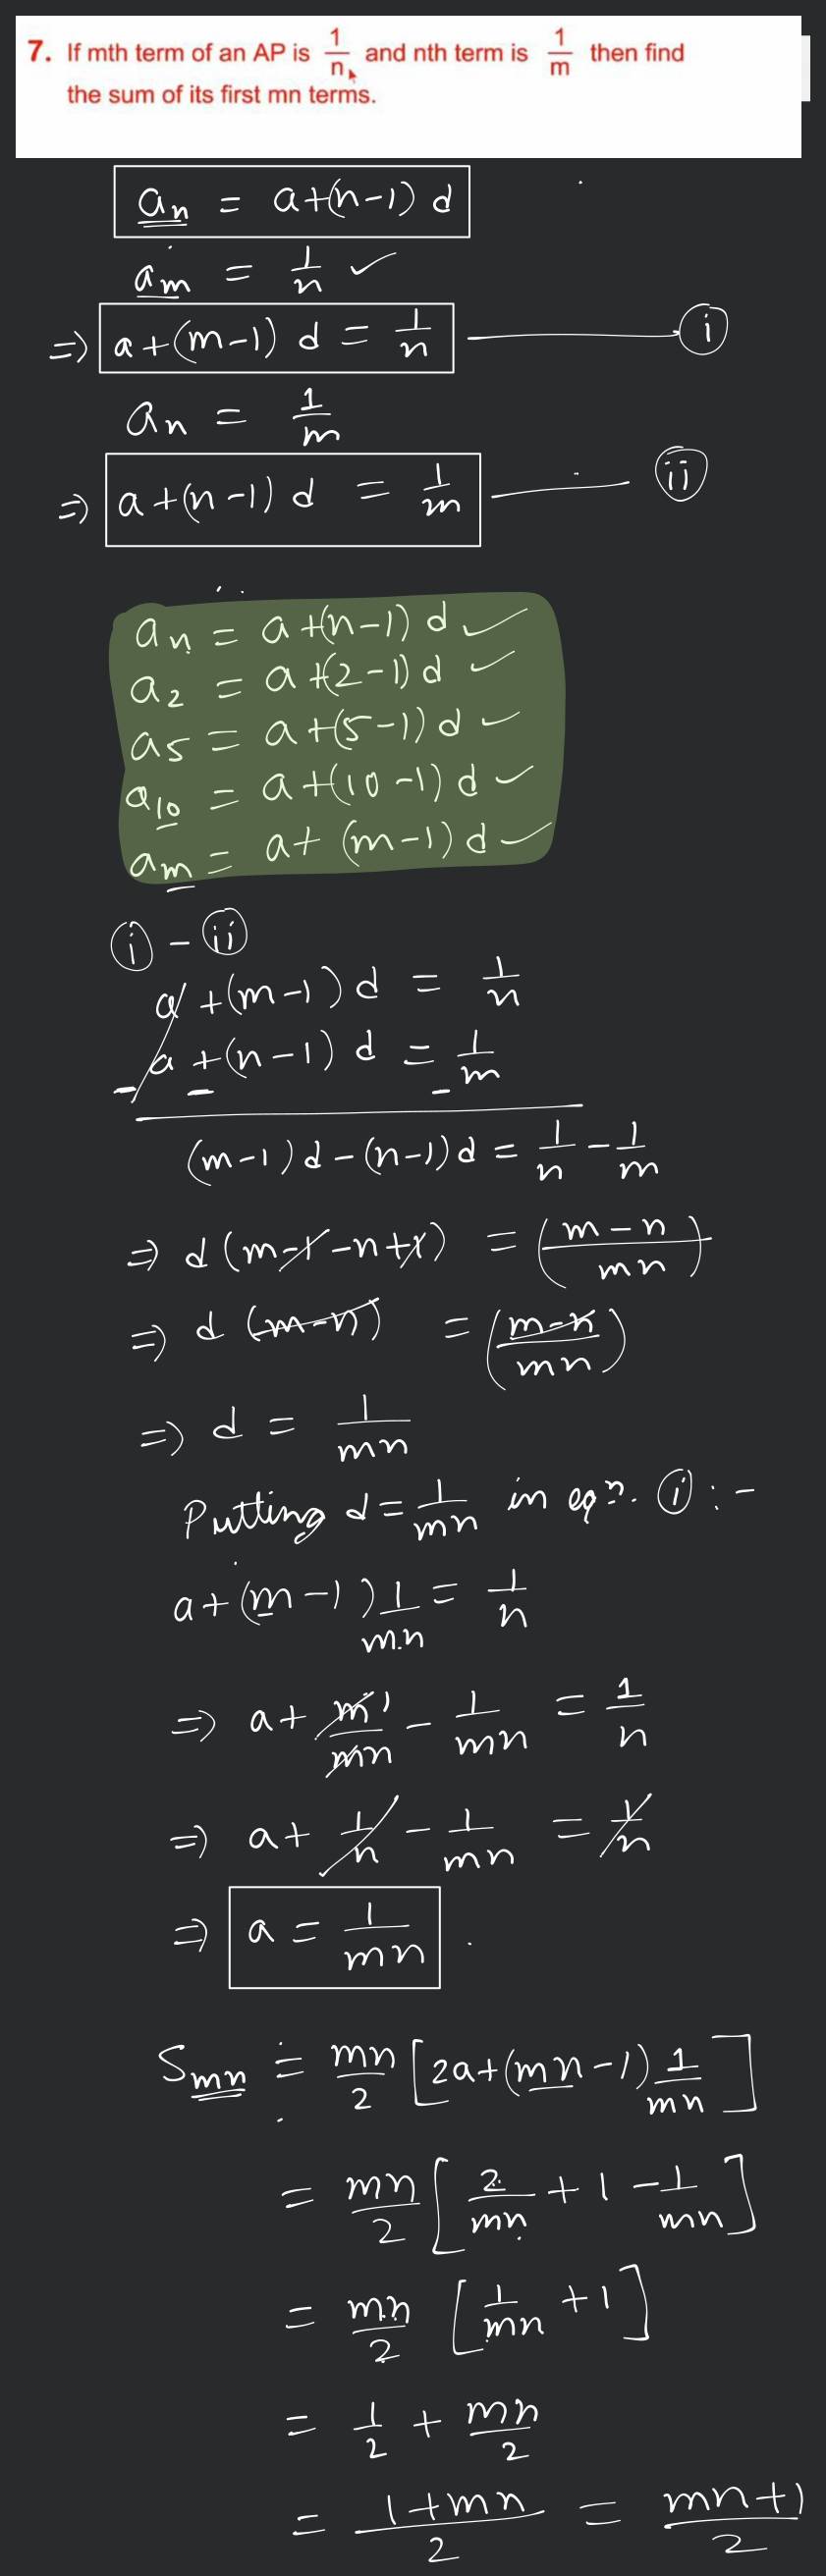 7. If mth term of an AP is 1/n and nth term is 1/m then find
the sum of its first mn terms.
aₙ = a+(n-1) d
aₘ = 1/n ✓
=> a+(m-1) d = 1/n ——— (i)
aₙ = 1/m
=> a+(n-1) d = 1/m ——— (ii)
aₙ = a+(n-1) d ✓
a₂ = a+(2-1) d ✓
a₅ = a+(5-1) d ✓
a₁₀ = a+(10-1) d ✓
aₘ = a+ (m-1) d ✓
(i) - (ii)
a+(m-1) d = 1/n
-a+(n-1) d = 1/m
- -
(m-1)d-(n-1)d = 1/n - 1/m
=> d(m-1-n+1) = (m-n/mn)
=> d (m-n) = (m-n/mn)
=> d = 1/mn
Putting d = 1/mn in eqn. (i) : -
a+(m-1) 1/m.n = 1/n
=> a+ m¹/mn - 1/mn = 1/n
=> a+ 1/n - 1/mn = 1/n
=> a = 1/mn .
Sₘₙ = mn/2 [2a+(mn-1) 1/mn]
= mn/2 [2/mn +1 - 1/mn]
= mn/2 [1/mn +1]
= 1/2 + mn/2
= 1+mn/2 = mn+1/2